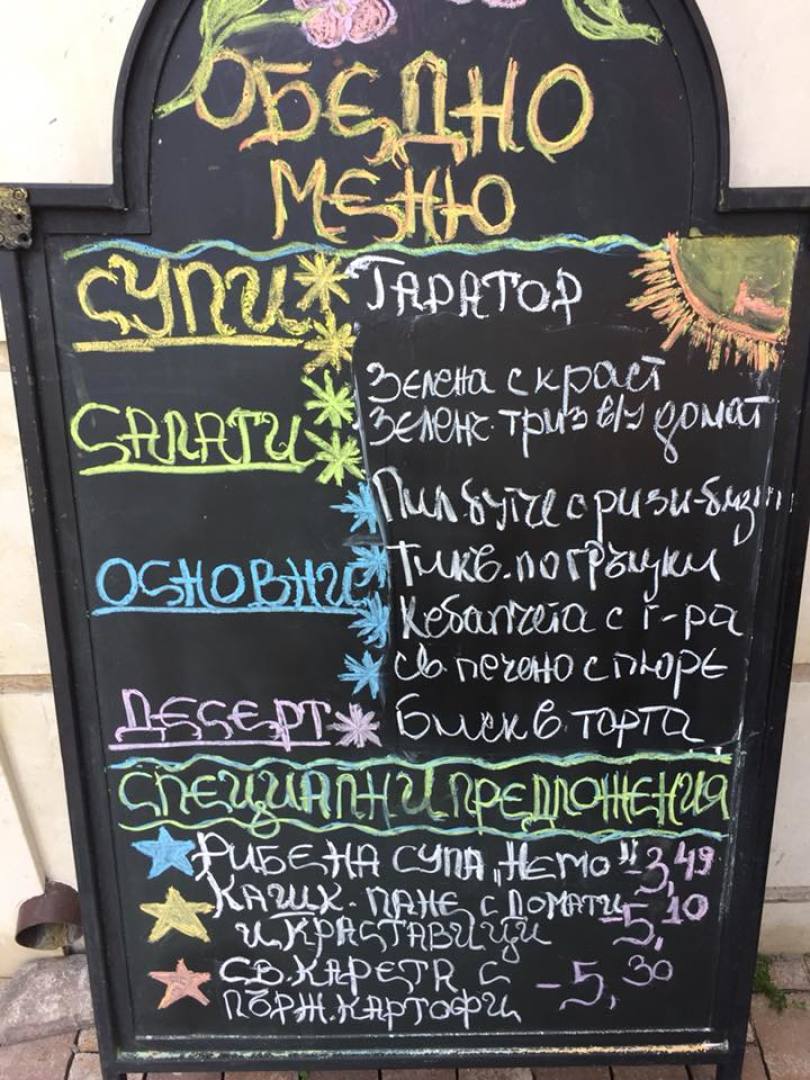 ОБЕДНО
МЕНЮ
СУПИ ТАРАТОР
Зелена с краст
САЛАТИ Зеленч. триз в/у домат
Пил. бутче с ризи-бизи
ОСНОВНИ Тикв. по гръцки
Кебапчета с г-ра
св. печено с пюре
ДЕСЕРТ Бискв. торта
СПЕЦИАЛНИ ПРЕДЛОЖЕНИЯ
РИБЕНА СУПА „НЕМО" - 3,49
КАШК. ПАНЕ С ДОМАТИ - 5,10
И КРАСТАВИЦИ
СВ. КАРЕТА С - 5,30
ПЪРЖ. КАРТОФИ